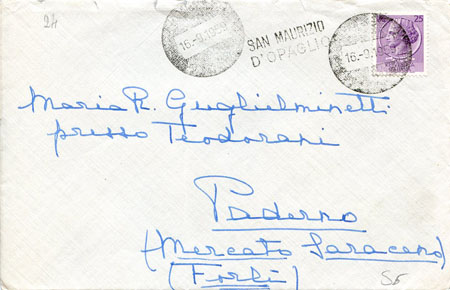 24
SAN MAURIZIO
D'OPAGLIO
25
Maria R. Guglielminetti
presso Teodorani
Paderno
(Mercato Saraceno)
(Forlì)